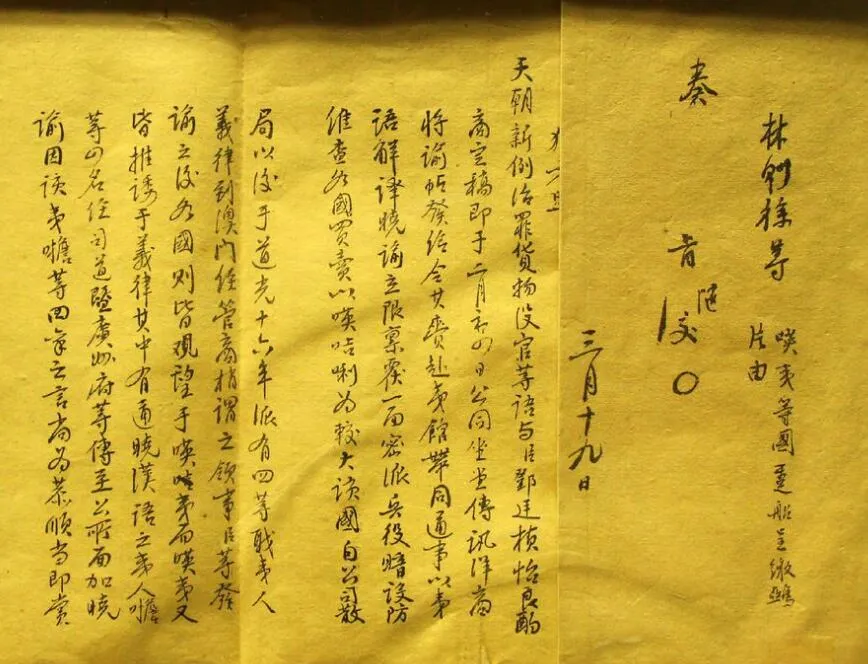 林則徐等
暎夷等國躉船呈繳鴉
片由
奏
旨
三月十九日
天朝新例治罪貨物没官等語与臣鄧廷楨怡良酌
商定稿即于二月初四日公同坐堂傳訊洋商
将諭帖發给令其賫赴夷館帶同通事以夷
語解譯曉諭立限禀覆一面密派兵役暗設防
維查各國買賣以暎咭唎為較大该國自公司散
局以後于道光十六年派有四等職夷人
義律到澳门经管商梢謂之領事臣等發
諭之後各國则皆觀望于暎咭夷而暎夷又
皆推諉于義律其中有通曉漢語之夷人噡
等四名经司道暨廣州府等傳至公所面加曉
諭因该夷噡等回稟之言尚为恭順当即賞